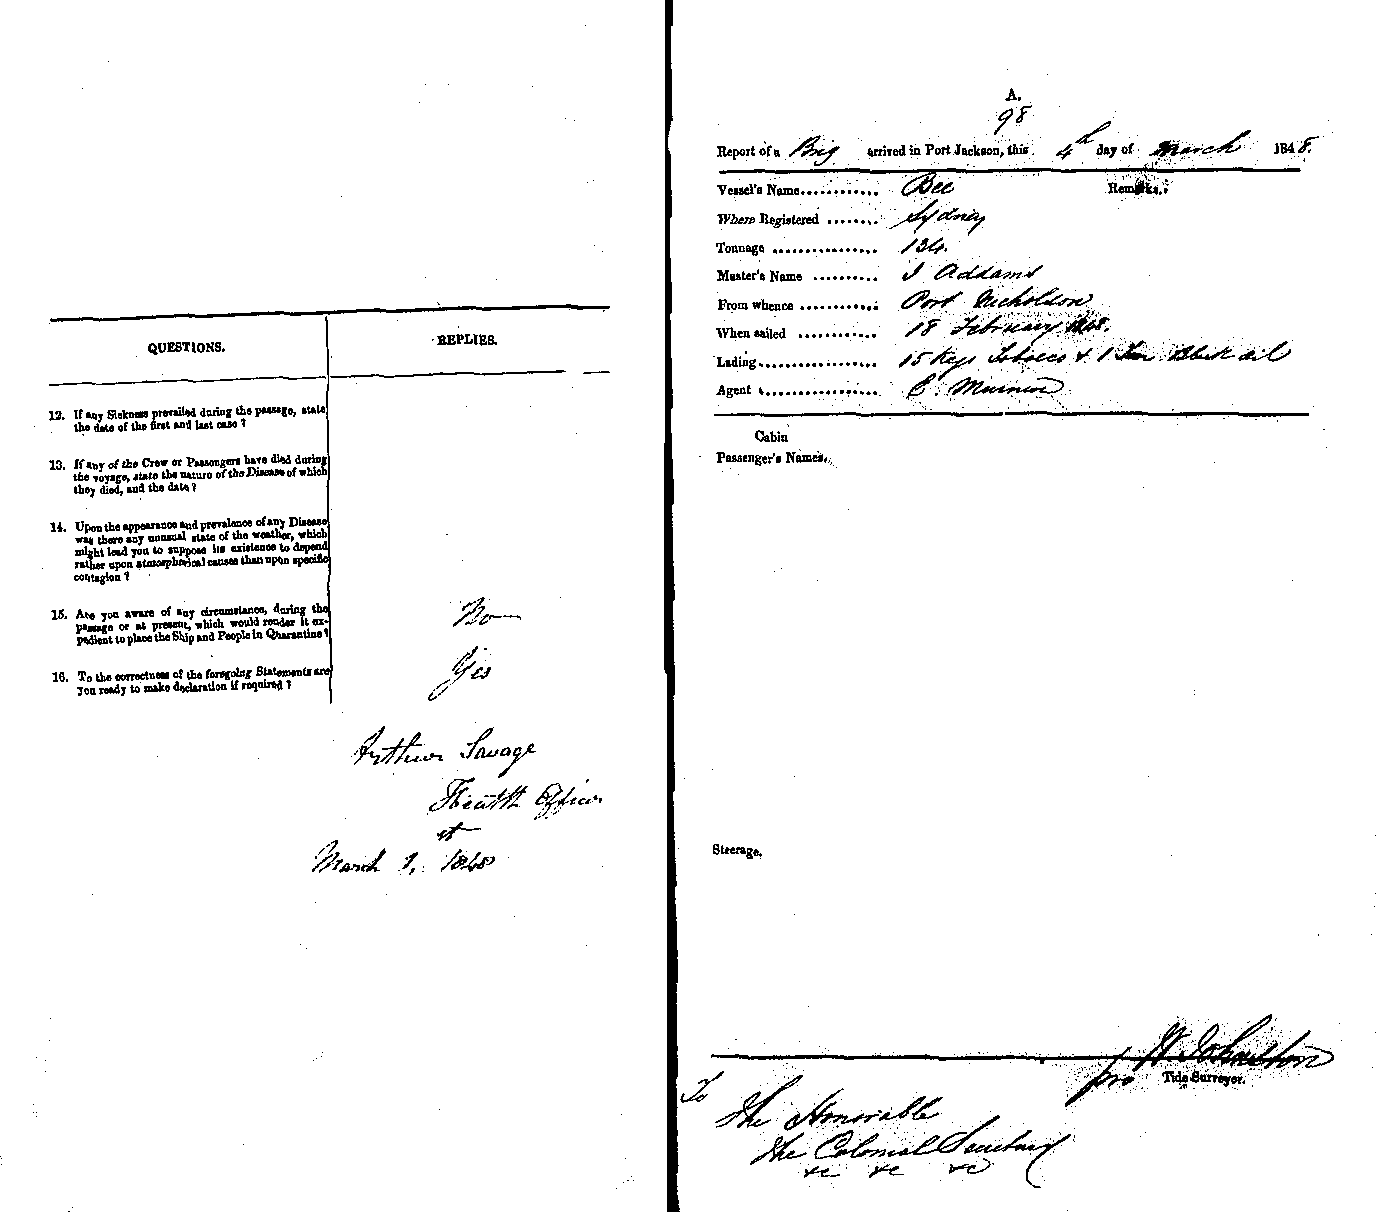 QUESTIONS.
REPLIES.
12. If any Sickness prevailed during the passage, state
the date of the first and last case ?
13. If any of the Crew or Passengers have died during
the voyage, state the nature of the Disease of which
they died, and the date ?
14. Upon the appearance and prevalence of any Disease
was there any unusual state of the weather, which
might lead you to suppose its existence to depend
rather upon atmospherical causes than upon specific
contagion ?
15. Are you aware of any circumstance, during the
passage or at present, which would render it ex-
pedient to place the Ship and People in Quarantine ?
No
16. To the correctness of the foregoing Statements are
you ready to make declaration if required ?
Yes
Arthur Savage
Health Officer
st
March 1, 1848
A.
98
Report of a Brig arrived in Port Jackson, this 4th day of March 1848.
Vessel's Name............ Bee Remarks.
Where Registered ........ Sydney
Tonnage ................ 134.
Master's Name .......... J Addams
From whence ............ Port Nicholson
When sailed ............ 18 February 1848.
Lading.................. 15 Kegs Tobacco & 1 Tun Black oil
Agent .................. E.
Cabin
Passenger's Names.
Steerage.
W Johnston
pro Tide Surveyor.
To
The Honorable
The Colonial Secretary
&c &c &c